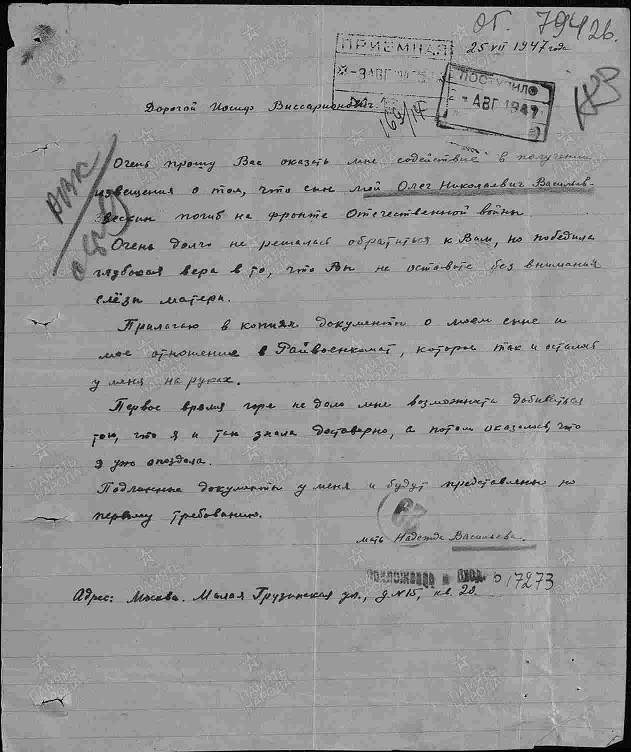 ОГ. 79426.
25 VII 1947 года
ПРИЕМНАЯ
-9 АВГ 194
ПОСТУПИЛО
АВГ 1947
169/14
Дорогой Иосиф Виссарионович.
РВК
Очень прошу Вас оказать мне содействие в получении
извещения о том, что сын мой Олег Николаевич Васильев-
погиб на фронте Отечественной войны
Очень долго не решалась обратиться к Вам, но победила
глубокая вера в то, что Вы не оставите без внимания
слёзы матери.
Прилагаю в копиях документы о моем сыне и
мое отношение в Райвоенкомат, которое так и осталось
у меня на руках.
Первое время горе не дало мне возможности добиваться
того, что я и так знала достоверно, а потом оказалось, что
я уже опоздала.
Подлинные документы у меня и будут представлены по
первому требованию.
62
мать Надежда Васильева.
Приложение к вход. 017273
Адрес: Москва. Малая Грузинская ул., д. №15, кв. 20.